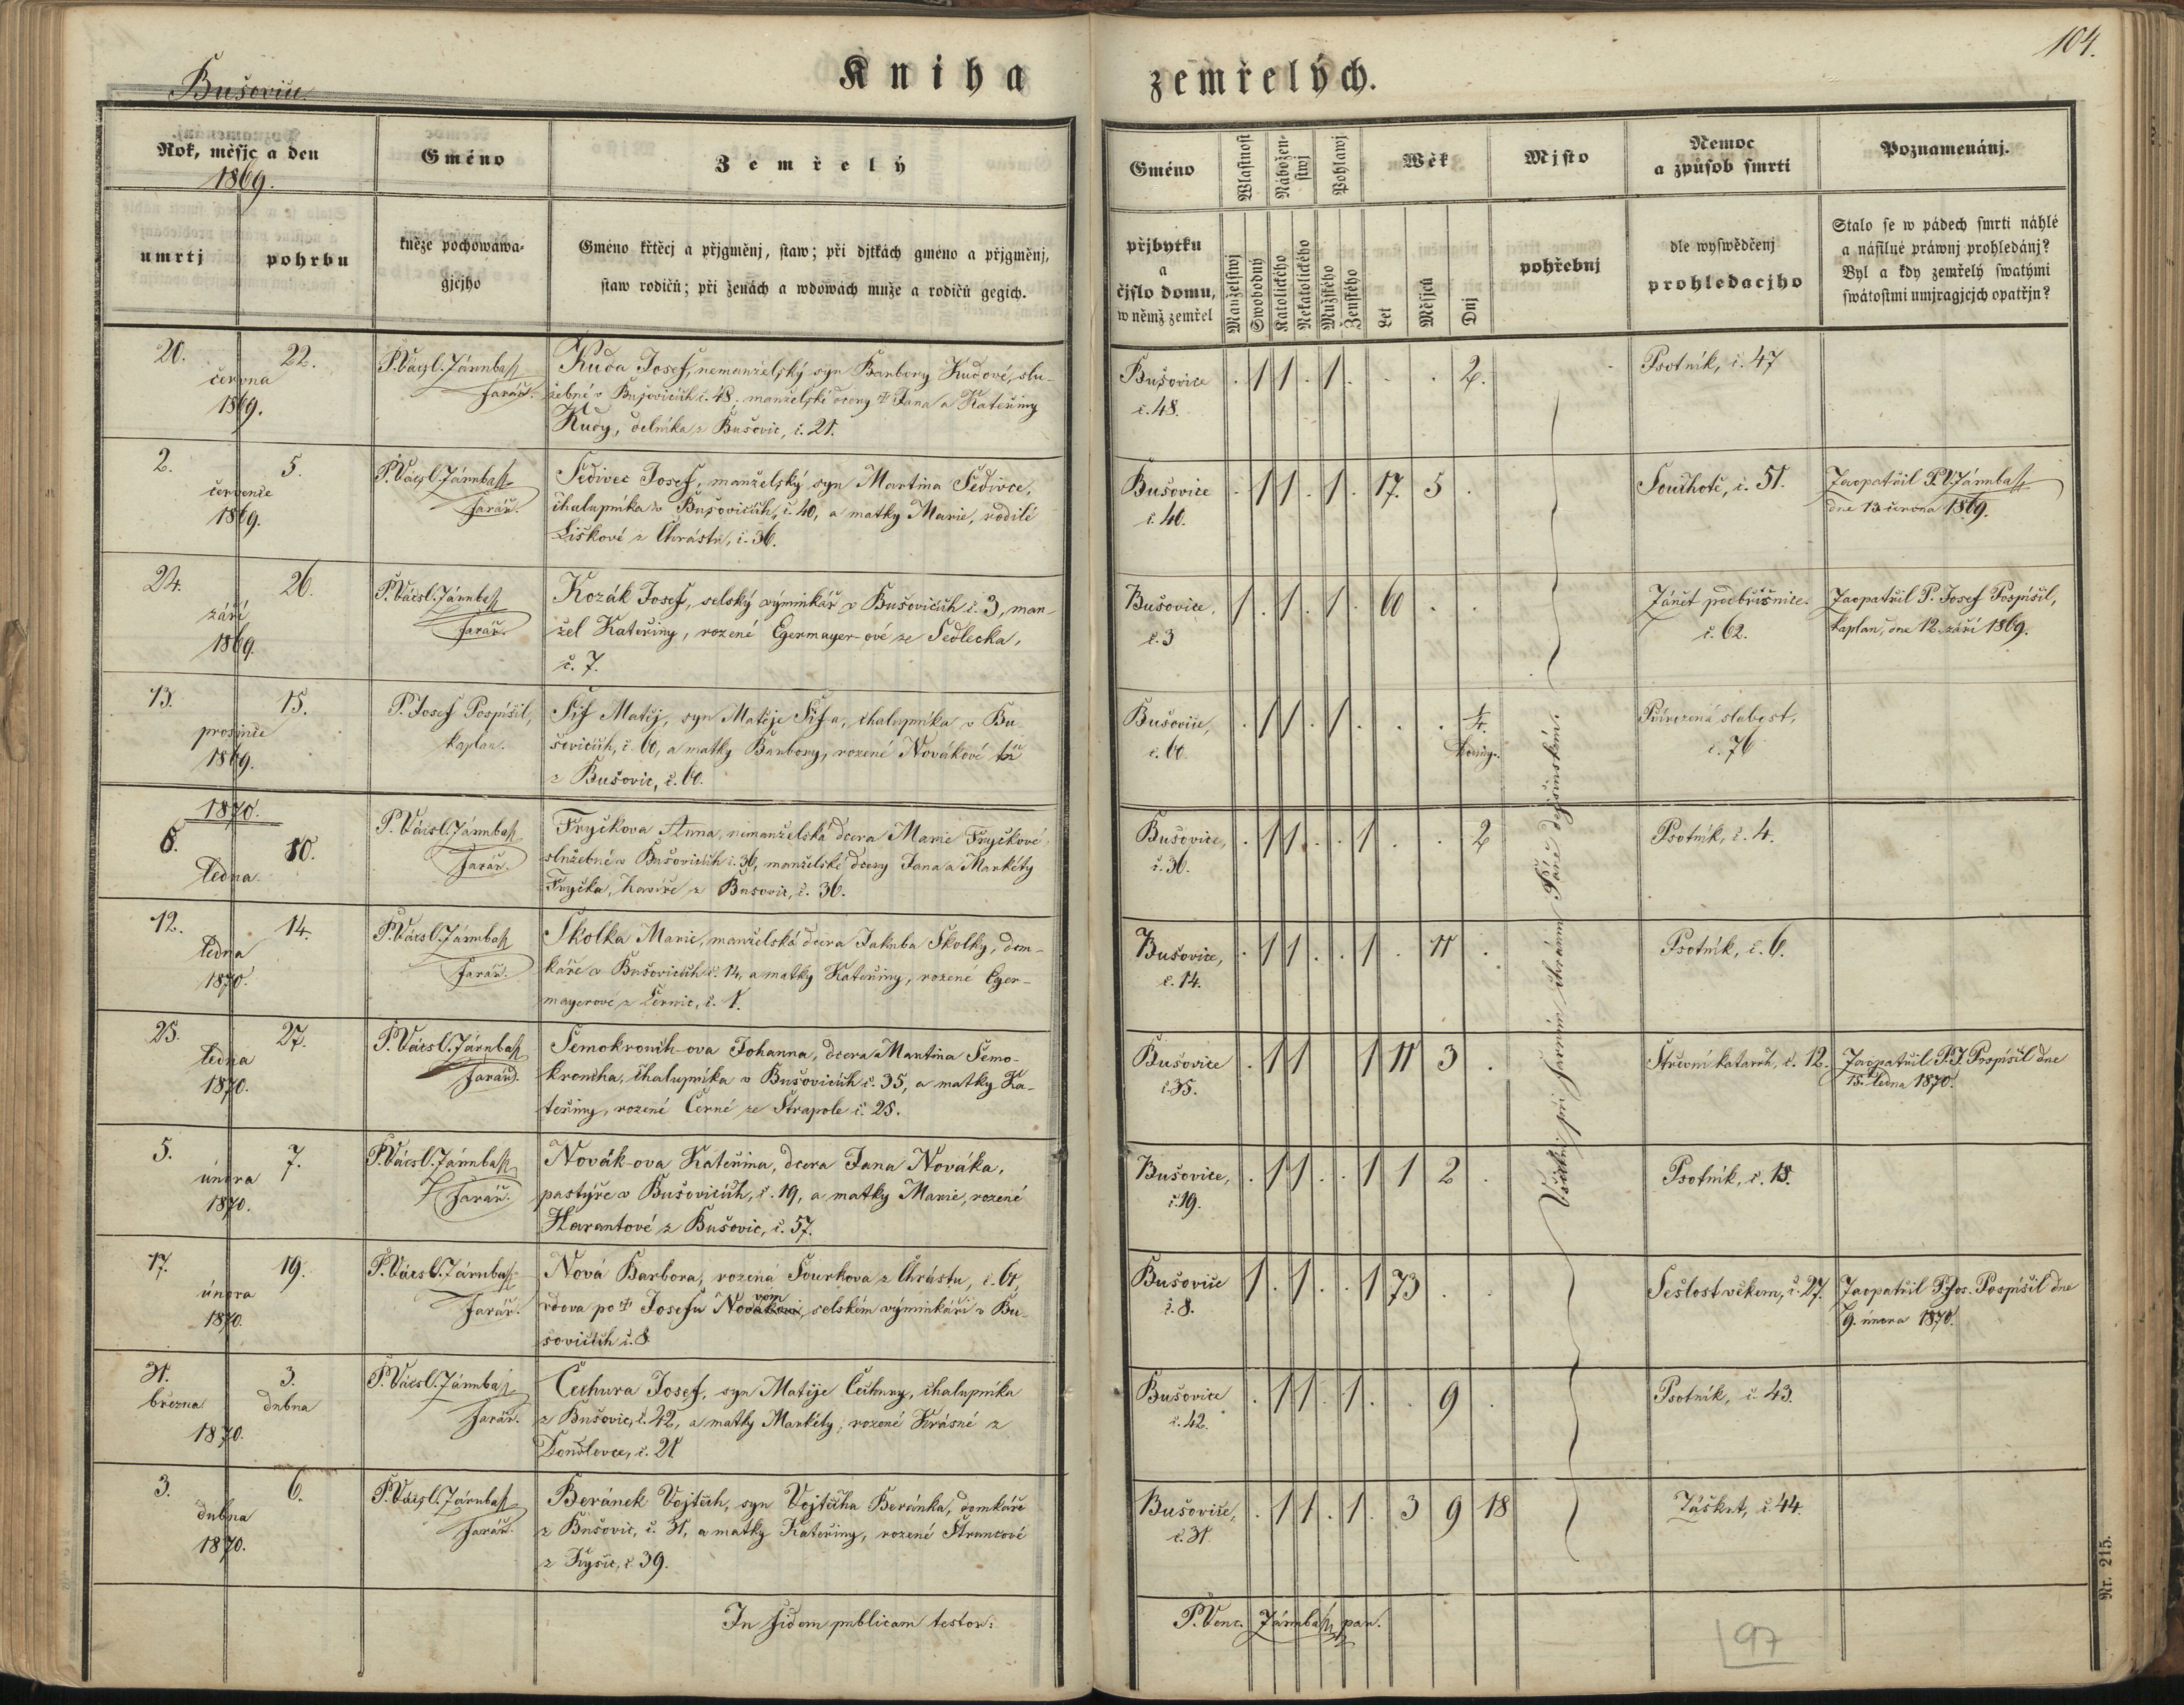 104.
Bušovice.
Kniha zemřelých.
Rok, měsjc a den
1869.
umrtj
pohrbu
Gméno
kněze pochowáwa-
gjcjho
Zemřelý
Gméno křtěcj a přjgměnj, staw; při djtkách gméno a přjgměnj,
staw rodičů; při ženách a wdowách muže a rodičů gegich.
Gméno
přjbytku
a
čjslo domu,
w němž zemřel
Wlastnost
Manželstwj
Swobodný
Nábožen-
stwj
Katolického
Nekatolického
Pohlawj
Mužského
Ženského
Wěk
Let
Měsjců
Dnj
Mjsto
pohřebnj
Nemoc
a způsob smrti
dle wyswědčenj
prohledacjho
Poznamenánj.
Stalo se w pádech smrti náhlé
a násilné práwnj prohledánj?
Byl a kdy zemřelý swatými
swátostmi umjragjcjch opatřjn?
20.
22.
června
1869.
P. Vácsl. Járnbaß
Farář.
Kuda Josef, nemanželský syn Barbory Kudové, slu-
žebné v Bušovicích č. 48. manželské dcery † Jana a Kateřiny
Kudy, dělníka z Bušovic, č. 21.
Bušovice
č. 48.
. 1 1 . 1 . . . 2.
Psotník, č. 47
2.
5.
července
1869.
P. Vácsl. Járnbaß
Farář.
Šedivec Josef, manželský syn Martina Šedivce,
chalupníka v Bušovicích, č. 40, a matky Marie, rodilé
Liškové z Chrástu, č. 36.
Bušovice
č. 40.
. 1 1 . 1 . 17. 5 .
Souchotě, č. 51.
Zaopatřil P. V. Járnbaß
dne 13 června 1869.
24.
26.
září
1869.
P. Vácsl. Járnbaß
Farář.
Kozák Josef, selský výminkář v Bušovicích č. 3, man-
žel Kateřiny, rozené Egermayer-ové ze Sedlecka,
č. 7.
Bušovice,
č. 3
1 . 1 . 1 . 60 . .
Zánět podbřišnice.
č. 62.
Zaopatřil P. Josef Pospíšil,
kaplan, dne 12. září 1869.
13.
15.
prosince
1869.
P. Josef Pospíšil,
kaplan.
Šif Matěj, syn Matěje Šif-a, chalupníka v Bu-
šovicích, č. 60, a matky Barbory, rozené Novákové též
z Bušovic, č. 60.
Bušovice,
č. 60.
. 1 1 . 1 . . . 1/4
hodiny.
Přirozená slabost,
č. 76
1870.
8.
10.
ledna.
P. Vácsl. Járnbaß
Farář.
Fryčkova Anna, nemanželská dcera Marie Fryčkové,
služebné v Bušovicích č. 36, manželské dcery Jana a Markéty
Fryčka, havíře z Bušovic, č. 36.
Bušovice,
č. 36.
. 1 1 . . 1 . . 2
Psotník, č. 4.
12.
14.
ledna
1870.
P. Vácsl. Járnbaß
Farář.
Školka Marie, manželská dcera Jakuba Školky, dom-
káře v Bušovicích č. 14, a matky Kateřiny, rozené Eger-
mayerové z Černic, č. 1.
Bušovice,
č. 14.
. 1 1 . . 1 . 11 .
Psotník, č. 6.
25.
27.
ledna
1870.
P. Vácsl. Járnbaß
Farář.
Šemokronich-ova Johanna, dcera Martina Šemo-
kronicha, chalupníka v Bušovicích č. 35, a matky Ka-
teřiny, rozené Černé ze Strapole č. 25.
Bušovice
č. 35.
. 1 1 1 11 3 .
Střevní katarrh, č. 12.
Zaopatřil P. J. Pospíšil dne
15. ledna 1870.
5.
7.
února
1870.
P. Vácsl. Járnbaß
Farář.
Novák-ova Kateřina, dcera Jana Nováka,
pastýře v Bušovicích, č. 19, a matky Marie, rozené
Harantové z Bušovic, č. 57.
Bušovice,
č. 19.
. 1 1 . . 1 1 2 .
Psotník, č. 18.
17.
19.
února
1870.
P. Vácsl. Járnbaß
Farář.
Nová Barbora, rozená Šourkova z Chrástu, č. 61,
vdova po † Josefu Novákovi, selském výminkáři v Bu-
šovicích č. 8.
Bušovice
č. 8.
1 . 1 . . 1 73 . .
Sešlost věkem, č. 27.
Zaopatřil P. Jos. Pospíšil dne
9. února 1870.
31.
března
3.
dubna
1870.
P. Vácsl. Járnbaß
Farář.
Čechura Josef, syn Matěje Čechury, chalupníka
z Bušovic, č. 42, a matky Markéty, rozené Krásné z
č. 21
Bušovice
č. 42.
. 1 1 . 1 . . 9 .
Psotník, č. 43.
3.
6.
dubna
1870.
P. Vácsl. Járnbaß
Farář.
Beránek Vojtěch, syn Vojtěcha Beránka, domkáře
z Bušovic, č. 31, a matky Kateřiny, rozené Štruncové
z Kyšic, č. 39.
Bušovice,
č. 31.
. 1 1 . 1 . 3 9 18
Záškrt, č. 44.
Všichni při farním chrámu Páně dejšinském.
In fidem publicam testor:
P. Venc. Járnbaß, par.
97
Nr. 215.